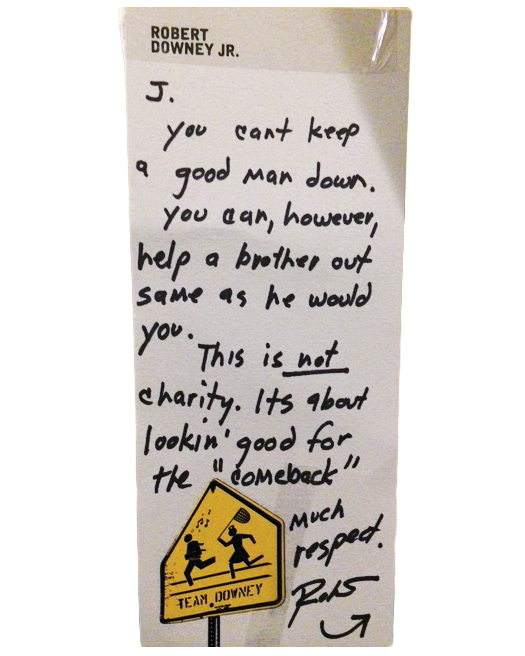 ROBERT
DOWNEY JR.
J.
you cant keep
a good man down.
you can, however,
help a brother out
same as he would
you.
This is not
charity. Its about
lookin' good for
the "comeback"
Much
respect.
TEAM DOWNEY